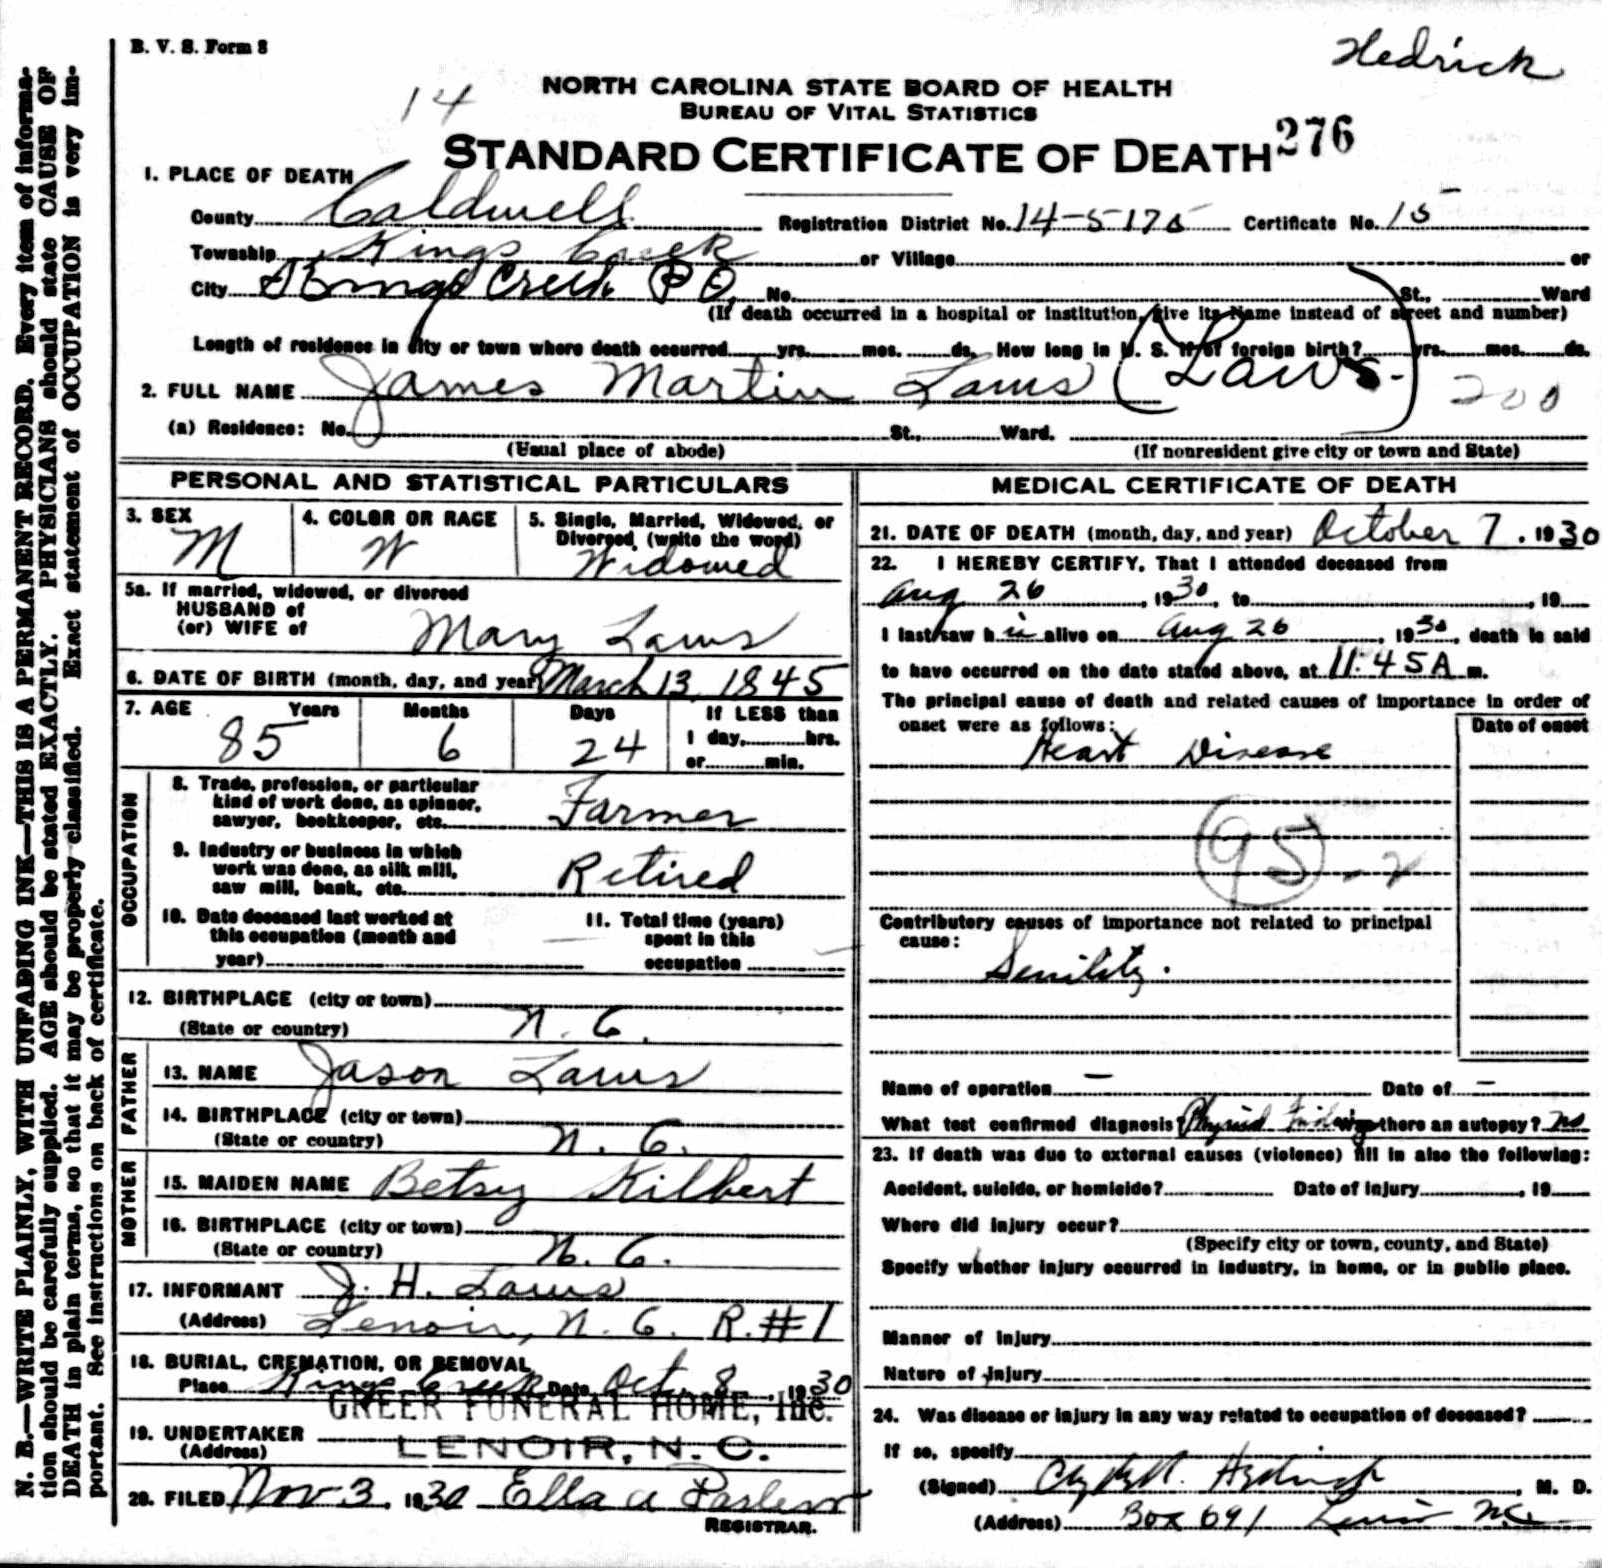 B. V. S. Form 8
Hedrick
14
NORTH CAROLINA STATE BOARD OF HEALTH
BUREAU OF VITAL STATISTICS
STANDARD CERTIFICATE OF DEATH 276
1. PLACE OF DEATH
County Caldwell Registration District No. 14-5175 Certificate No. 15
Township Kings Creek or Village or
City Kings Creek P O, No. St., Ward
(If death occurred in a hospital or institution, give its Name instead of street and number)
Length of residence in city or town where death occurred yrs. mos. ds. How long in U. S. if of foreign birth? yrs. mos. ds.
2. FULL NAME James Martin Laws (Laws.) 200
(a) Residence: No. St., Ward.
(Usual place of abode) (If nonresident give city or town and State)
PERSONAL AND STATISTICAL PARTICULARS
3. SEX M
4. COLOR OR RACE W
5. Single, Married, Widowed, or
Divorced, (write the word)
Widowed
5a. If married, widowed, or divorced
HUSBAND of
(or) WIFE of Mary Laws
6. DATE OF BIRTH (month, day, and year) March 13, 1845
7. AGE Years Months Days If LESS than
85 6 24 1 day, hrs.
or min.
OCCUPATION
8. Trade, profession, or particular
kind of work done, as spinner,
sawyer, bookkeeper, etc. Farmer
9. Industry or business in which
work was done, as silk mill,
saw mill, bank, etc. Retired
10. Date deceased last worked at
this occupation (month and
year)
11. Total time (years)
spent in this
occupation
12. BIRTHPLACE (city or town)
(State or country) N. C.
FATHER
13. NAME Jason Laws
14. BIRTHPLACE (city or town)
(State or country) N. C.
MOTHER
15. MAIDEN NAME Betsy Kilbert
16. BIRTHPLACE (city or town)
(State or country) N. C.
17. INFORMANT J. H. Laws
(Address) Lenoir, N. C. R. #1
18. BURIAL, CREMATION, OR REMOVAL
Place Kings Creek Date Oct. 8, 1930
GREER FUNERAL HOME, Inc.
19. UNDERTAKER
(Address) LENOIR, N. C.
20. FILED Nov 3, 1930 Ella A
REGISTRAR.
MEDICAL CERTIFICATE OF DEATH
21. DATE OF DEATH (month, day, and year) October 7, 1930
22. I HEREBY CERTIFY, That I attended deceased from
Aug 26, 1930, to , 19
I last saw h im alive on Aug 26, 1930, death is said
to have occurred on the date stated above, at 11:45 A m.
The principal cause of death and related causes of importance in order of
onset were as follows: Date of onset
Heart Disease
95-2
Contributory causes of importance not related to principal
cause:
Senility.
Name of operation — Date of —
What test confirmed diagnosis? Physical Findings Was there an autopsy? no
23. If death was due to external causes (violence) fill in also the following:
Accident, suicide, or homicide? Date of injury , 19
Where did injury occur?
(Specify city or town, county, and State)
Specify whether injury occurred in industry, in home, or in public place.
Manner of injury
Nature of injury
24. Was disease or injury in any way related to occupation of deceased?
If so, specify
(Signed) Hedrick, M. D.
(Address) Box 691 Lenoir NC
N. B.—WRITE PLAINLY, WITH UNFADING INK—THIS IS A PERMANENT RECORD. Every item of informa-
tion should be carefully supplied. AGE should be stated EXACTLY. PHYSICIANS should state CAUSE OF
DEATH in plain terms, so that it may be properly classified. Exact statement of OCCUPATION is very im-
portant. See instructions on back of certificate.